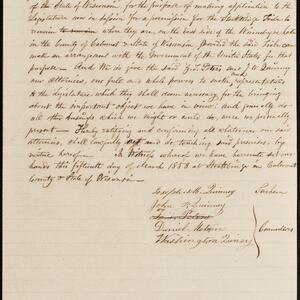 of the State of Wisconsin, for the purpose of making application to the
Legislature now in session for a permission for the Stockbridge Tribe to
remain to remain where they are, on the east side of the Winnebago lake
in the County of Calumet & State of Wisconsin, provided the said Tribe can
make an arrangement with the Government of the United States for that
purpose. And We do give the said Ziba Peters and J Quinney
our attornies, our full and whole power to make representations
to the Legislature, which they shall deem necessary, for the bringing
about the important object we have in view: and generally do
all the business which we might or could do, were we personally
present — Hereby ratifying and confirming all whatever our said
attornies, shall lawfully act and do, touching said premises, by
virtue hereof. In Witness whereof we have hereunto set our
hands this fifteenth day of March 1853 at Stockbridge in Calumet
County & State of Wisconsin
Joseph M. Quinney Sachem
John Quinney
Peters
Daniel Metoxin Counsellors
Washington Quiney